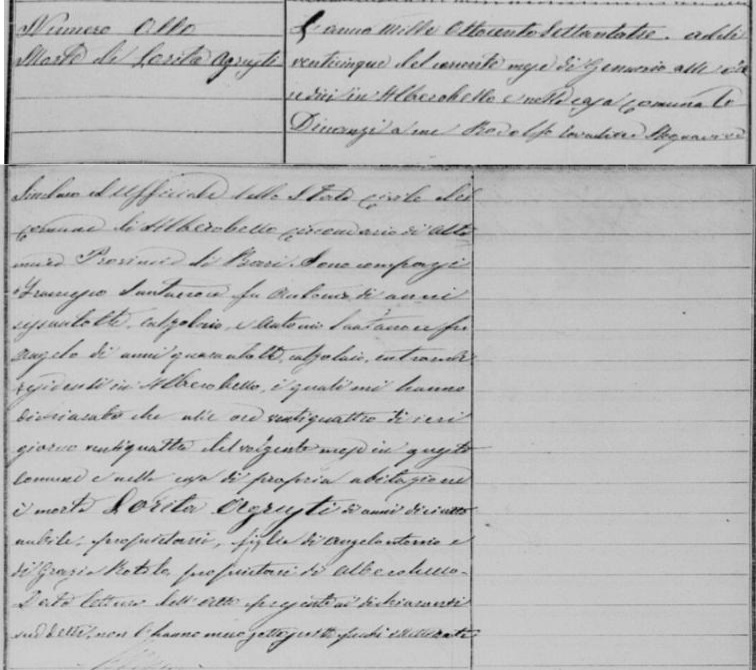 Numero Otto
Morte di Lorita Agrusti
L'anno Mille Ottocento Settantatre. addi
venticinque del corrente mese di Gennaio alle ore
in Alberobello e nella casa Comunale
Dinanzi a me Rodolfo Cavaliere Acquaviva
Sindaco ed Uffiziale dello Stato Civile del
Comune di Alberobello Circondario di Alta
mura Provincia di Bari. Sono comparsi
Francesco Santacroce fu Antonio di anni
sessantotto, calzolaio, e Antonio Santacroce fu
Angelo di anni quarantotto, calzolaio, entrambi
residenti in Alberobello, i quali mi hanno
dichiarato che alle ore ventiquattro di ieri
giorno ventiquattro del volgente mese in questo
Comune e nella casa di propria abitazione
è morta Lorita Agrusti di anni diciotto
nubile, proprietaria, figlia di Angelantonio e
di Grazia Rotolo proprietari di Alberobello.
Data lettura dell'atto presente ai dichiaranti
suddetti, non l'hanno meco sottoscritto perché illetterati